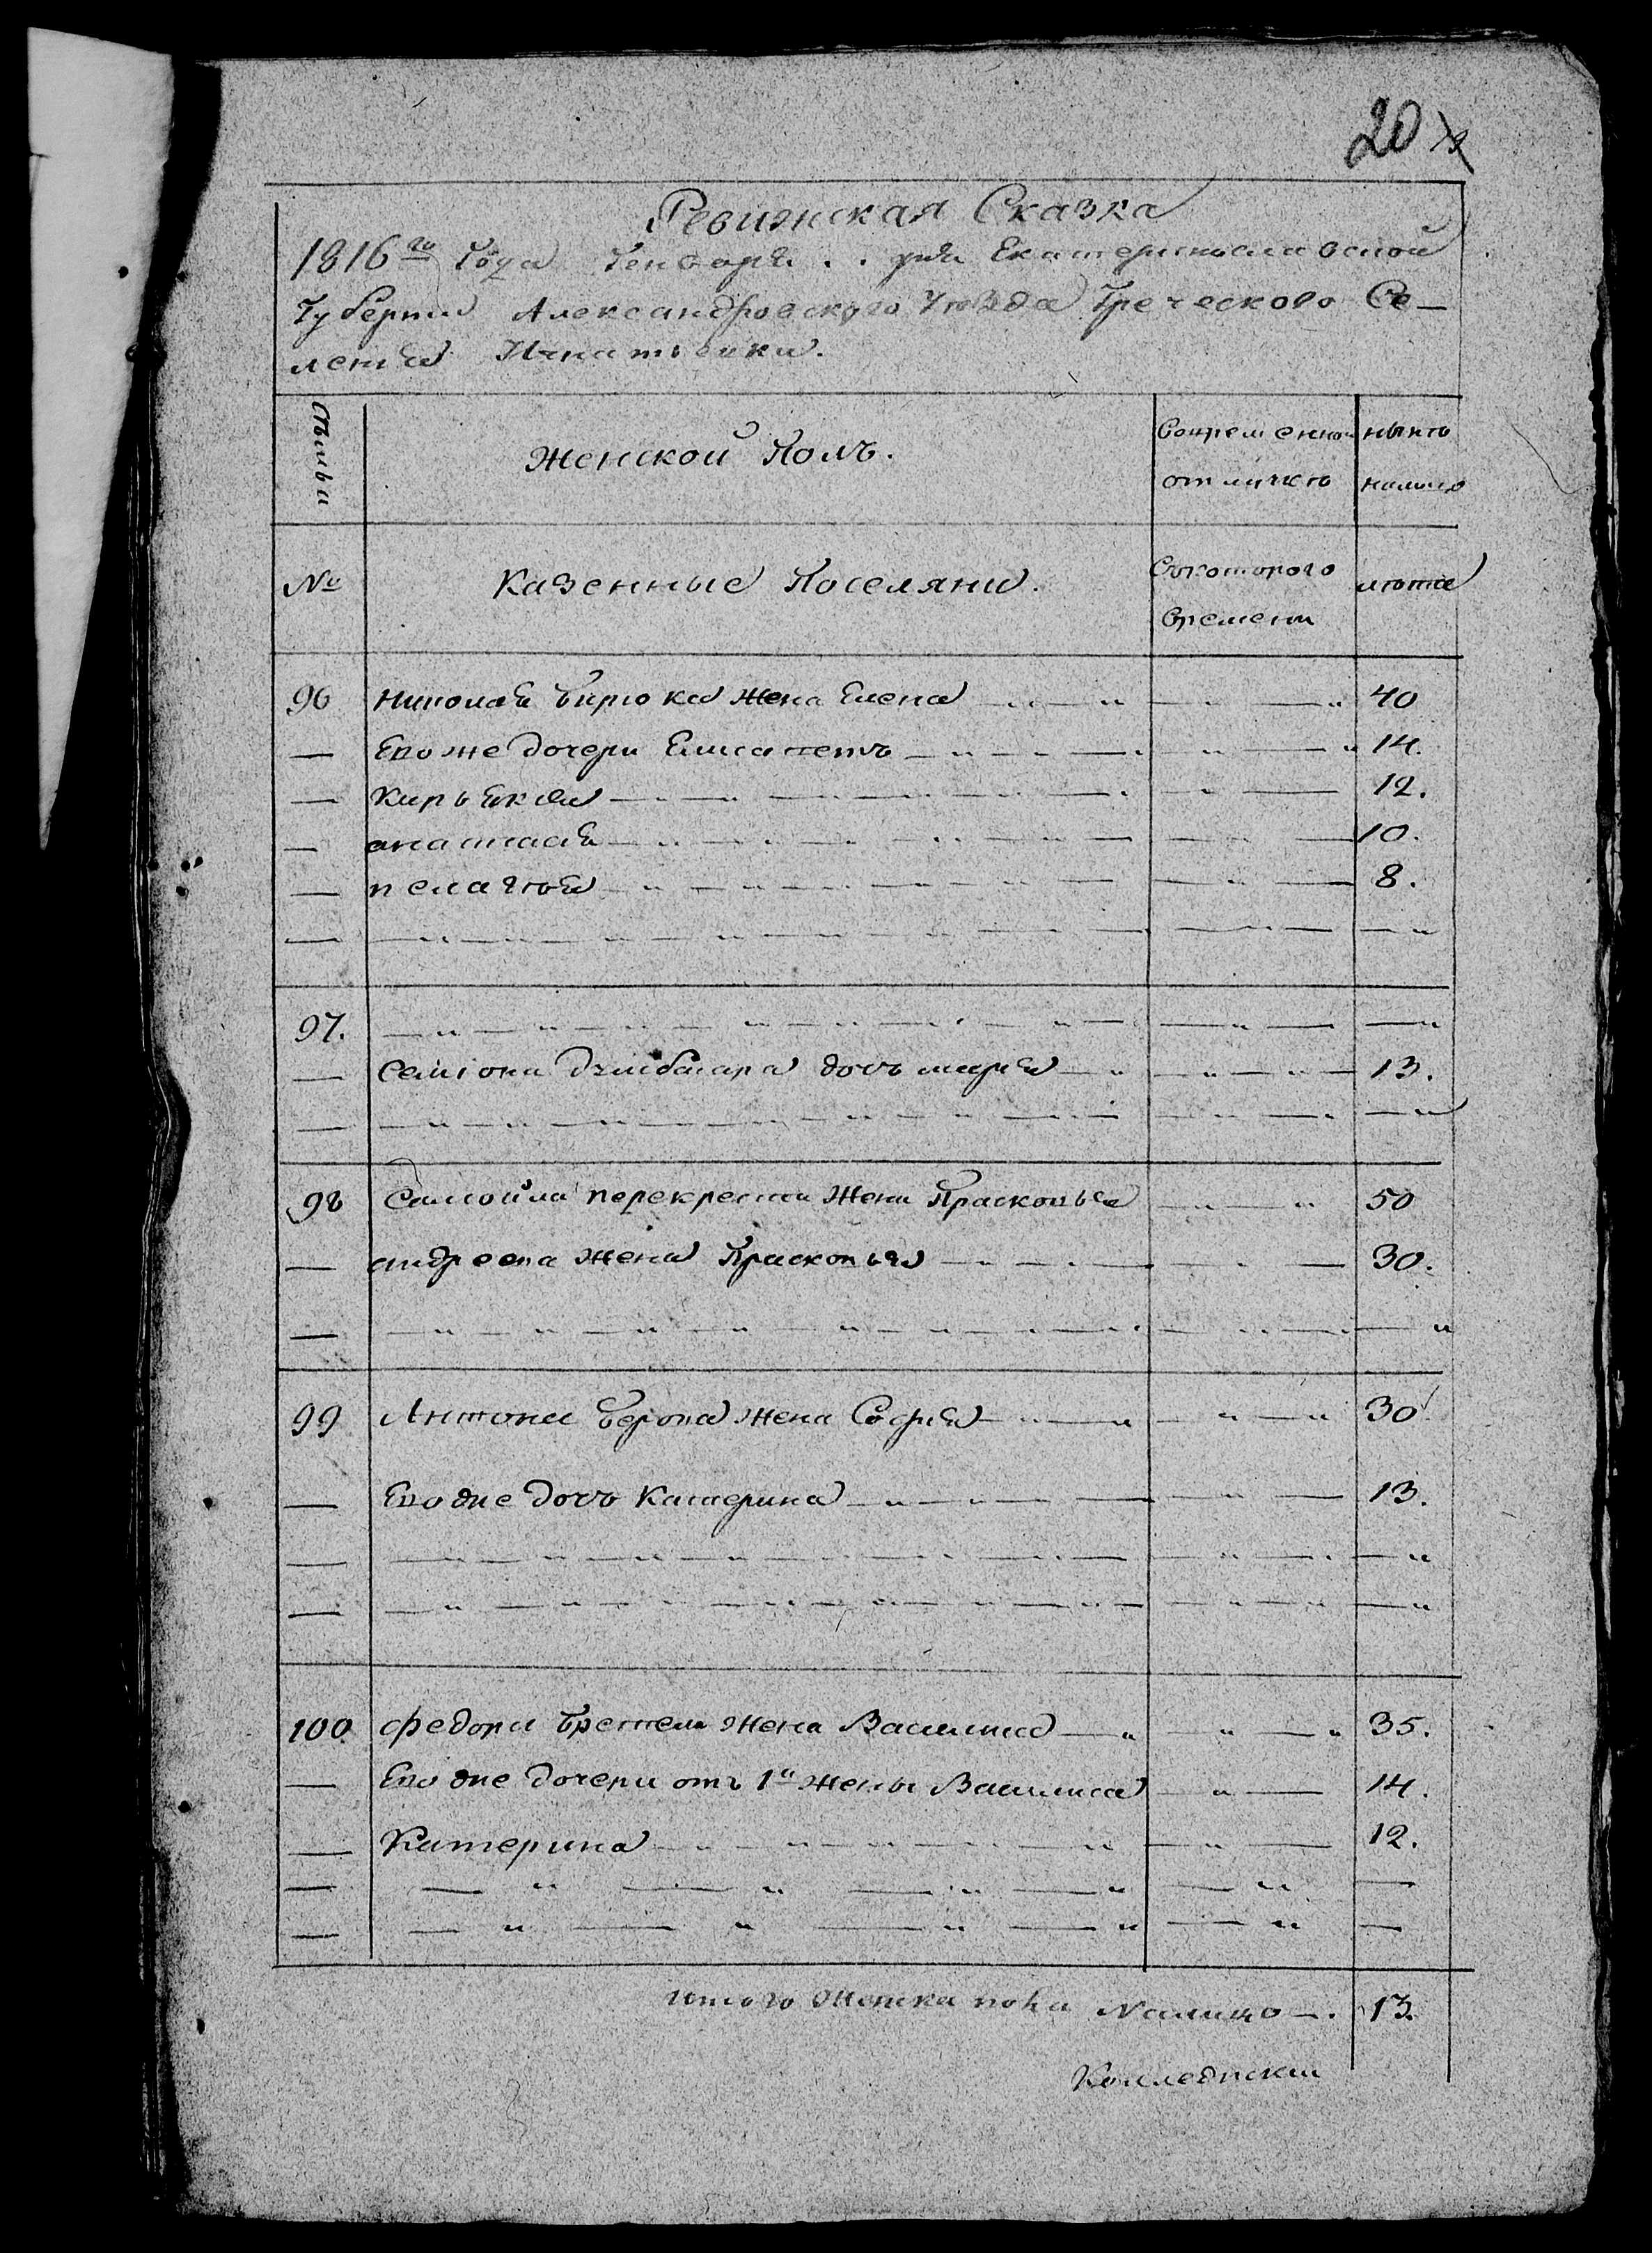 20 19
Ревижская Сказка
1816го Года Генваря . . дня Екатеринославской
Губернии Александровского Уезда Греческого Се-
ления Игнатьевки.
Семьи Женской Полъ. Вовременной отлучке ныне налицо
№ Казенные Поселяни. Съкоторого времени лета
96 Николая Бирюка жена Елена 40
— Его же дочери Елисаветъ 14.
— Кирьякия 12.
— анастасия 10.
— пелагея 8.
97.
— Семiона дочь мария 13.
98 Самойла перекреста Жена Прасковья 50
— андреева жена Прасковья 30.
99 Антона жена София 30
— Его же дочь Катерина 13.
100. федора жена Василиса 35.
— Его же дочери отъ 1й жены Василиса 14.
— Катерина 12.
итого женска пола Налицо —. 13.